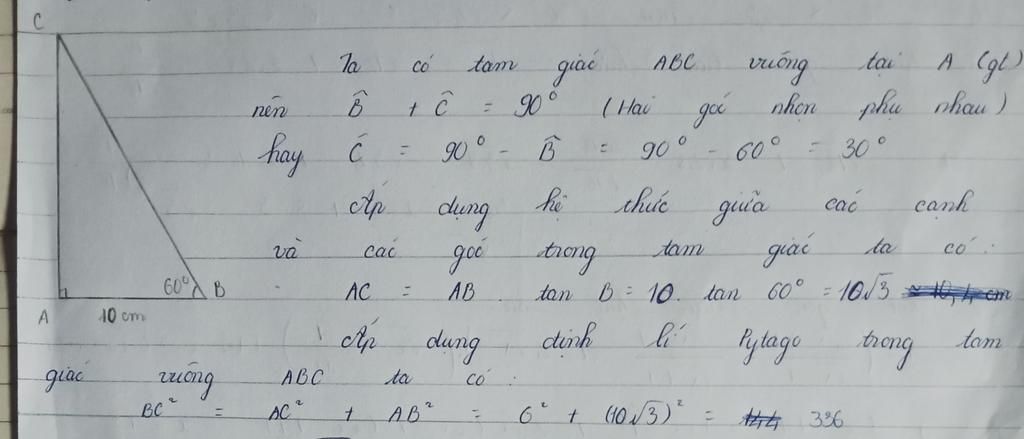 C
Ta có tam giác ABC vuông tại A (gt)
nên B̂ + Ĉ = 90° (Hai góc nhọn phụ nhau)
hay Ĉ = 90° - B̂ = 90° - 60° = 30°
Áp dụng hệ thức giữa các cạnh
và các góc trong tam giác ta có:
60° B
AC = AB . tan B = 10. tan 60° = 10√3
A 10 cm
Áp dụng định lí Pytago trong tam
giác vuông ABC ta có:
BC² = AC² + AB² = 6² + (10√3)² = 336